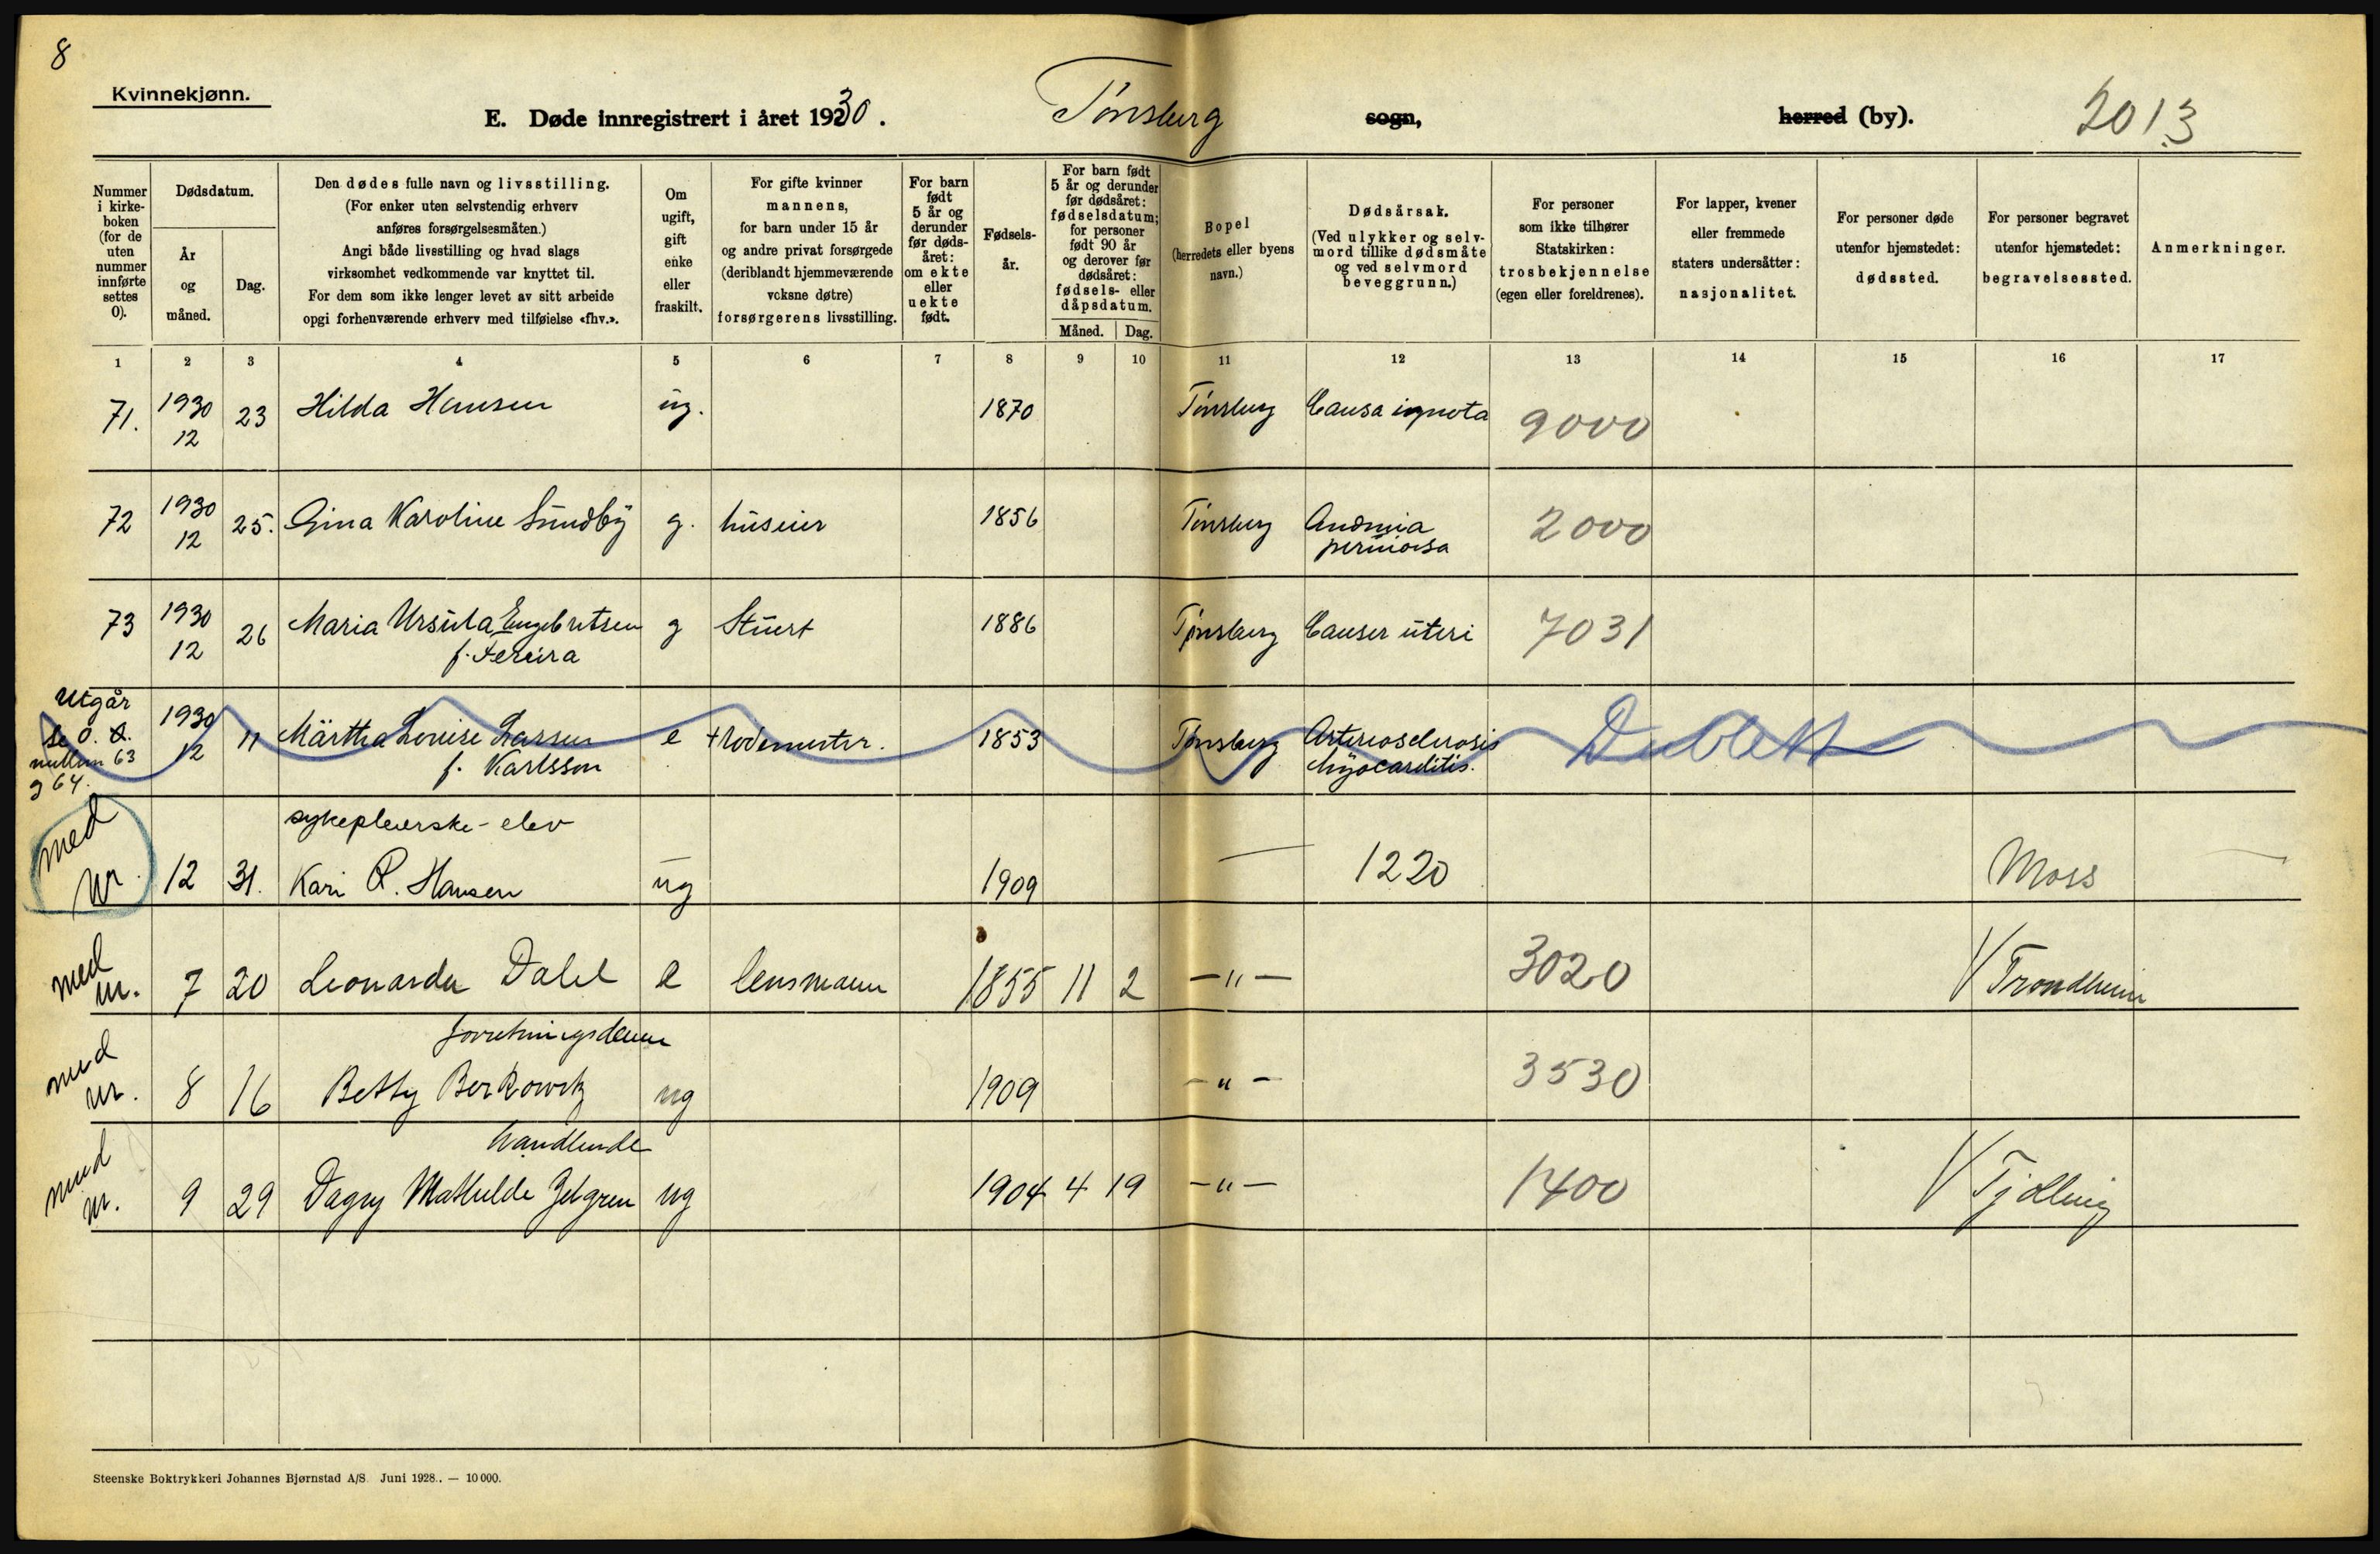 8
Kvinnekjønn.
E. Døde innregistrert i året 1930. Tønsberg sogn, herred (by). 2013
Nummer i kirke-boken (for de uten nummer innførte settes 0).
Dødsdatum.
År og måned.
Dag.
Den dødes fulle navn og livsstilling.
(For enker uten selvstendig erhverv
anføres forsørgelsesmåten.)
Angi både livsstilling og hvad slags
virksomhet vedkommende var knyttet til.
For dem som ikke lenger levet av sitt arbeide
opgi forhenværende erhverv med tilføielse «fhv.».
Om ugift, gift enke eller fraskilt.
For gifte kvinner
mannens,
for barn under 15 år
og andre privat forsørgede
(deriblandt hjemmeværende
voksne døtre)
forsørgerens livsstilling.
For barn født 5 år og derunder før døds-året: om ekte eller uekte født.
Fødsels-år.
For barn født
5 år og derunder
før dødsåret:
fødselsdatum;
for personer
født 90 år
og derover før
dødsåret:
fødsels- eller
dåpsdatum.
Måned. Dag.
Bopel
(herredets eller byens
navn.)
Dødsårsak.
(Ved ulykker og selv-
mord tillike dødsmåte
og ved selvmord
beveggrunn.)
For personer
som ikke tilhører
Statskirken:
trosbekjennelse
(egen eller foreldrenes).
For lapper, kvener
eller fremmede
staters undersåtter:
nasjonalitet.
For personer døde
utenfor hjemstedet:
dødssted.
For personer begravet
utenfor hjemstedet:
begravelsessted.
Anmerkninger.
1 2 3 4 5 6 7 8 9 10 11 12 13 14 15 16 17
71. 1930 12 23 Hilda Hansen ug. 1870 Tønsberg Causa ignota 9000
72 1930 12 25. Gina Karoline Sundby g. huseier 1856 Tønsberg Anæmia perniciosa 2000
73 1930 12 26 Maria Ursula Engebretsen g Stuert 1886 Tønsberg Cancer uteri 7031
f. Fereira
Utgår
se
63
g 64.
1930 12 11 Märtha Lovise Larsen e Rodemester. 1853 Tønsberg Arteriosclerosis Dublett
f. Karlsson Myocarditis.
sykepleierske-elev
med nr. 12 31. Kari R. Hansen ug 1909 — 1220 Moss —
med nr. 7 20 Leonarda Dahl e lensmann 1855 11 2 —"— 3020 Trondheim
forretningsdame
med nr. 8 16 Betty Berkowitz ug 1909 —"— 3530
handlende
med nr. 9 29 Dagny Mathilde ug 1904 4 19 —"— 1400 Tjølling
Steenske Boktrykkeri Johannes Bjørnstad A/S. Juni 1928.. — 10 000.